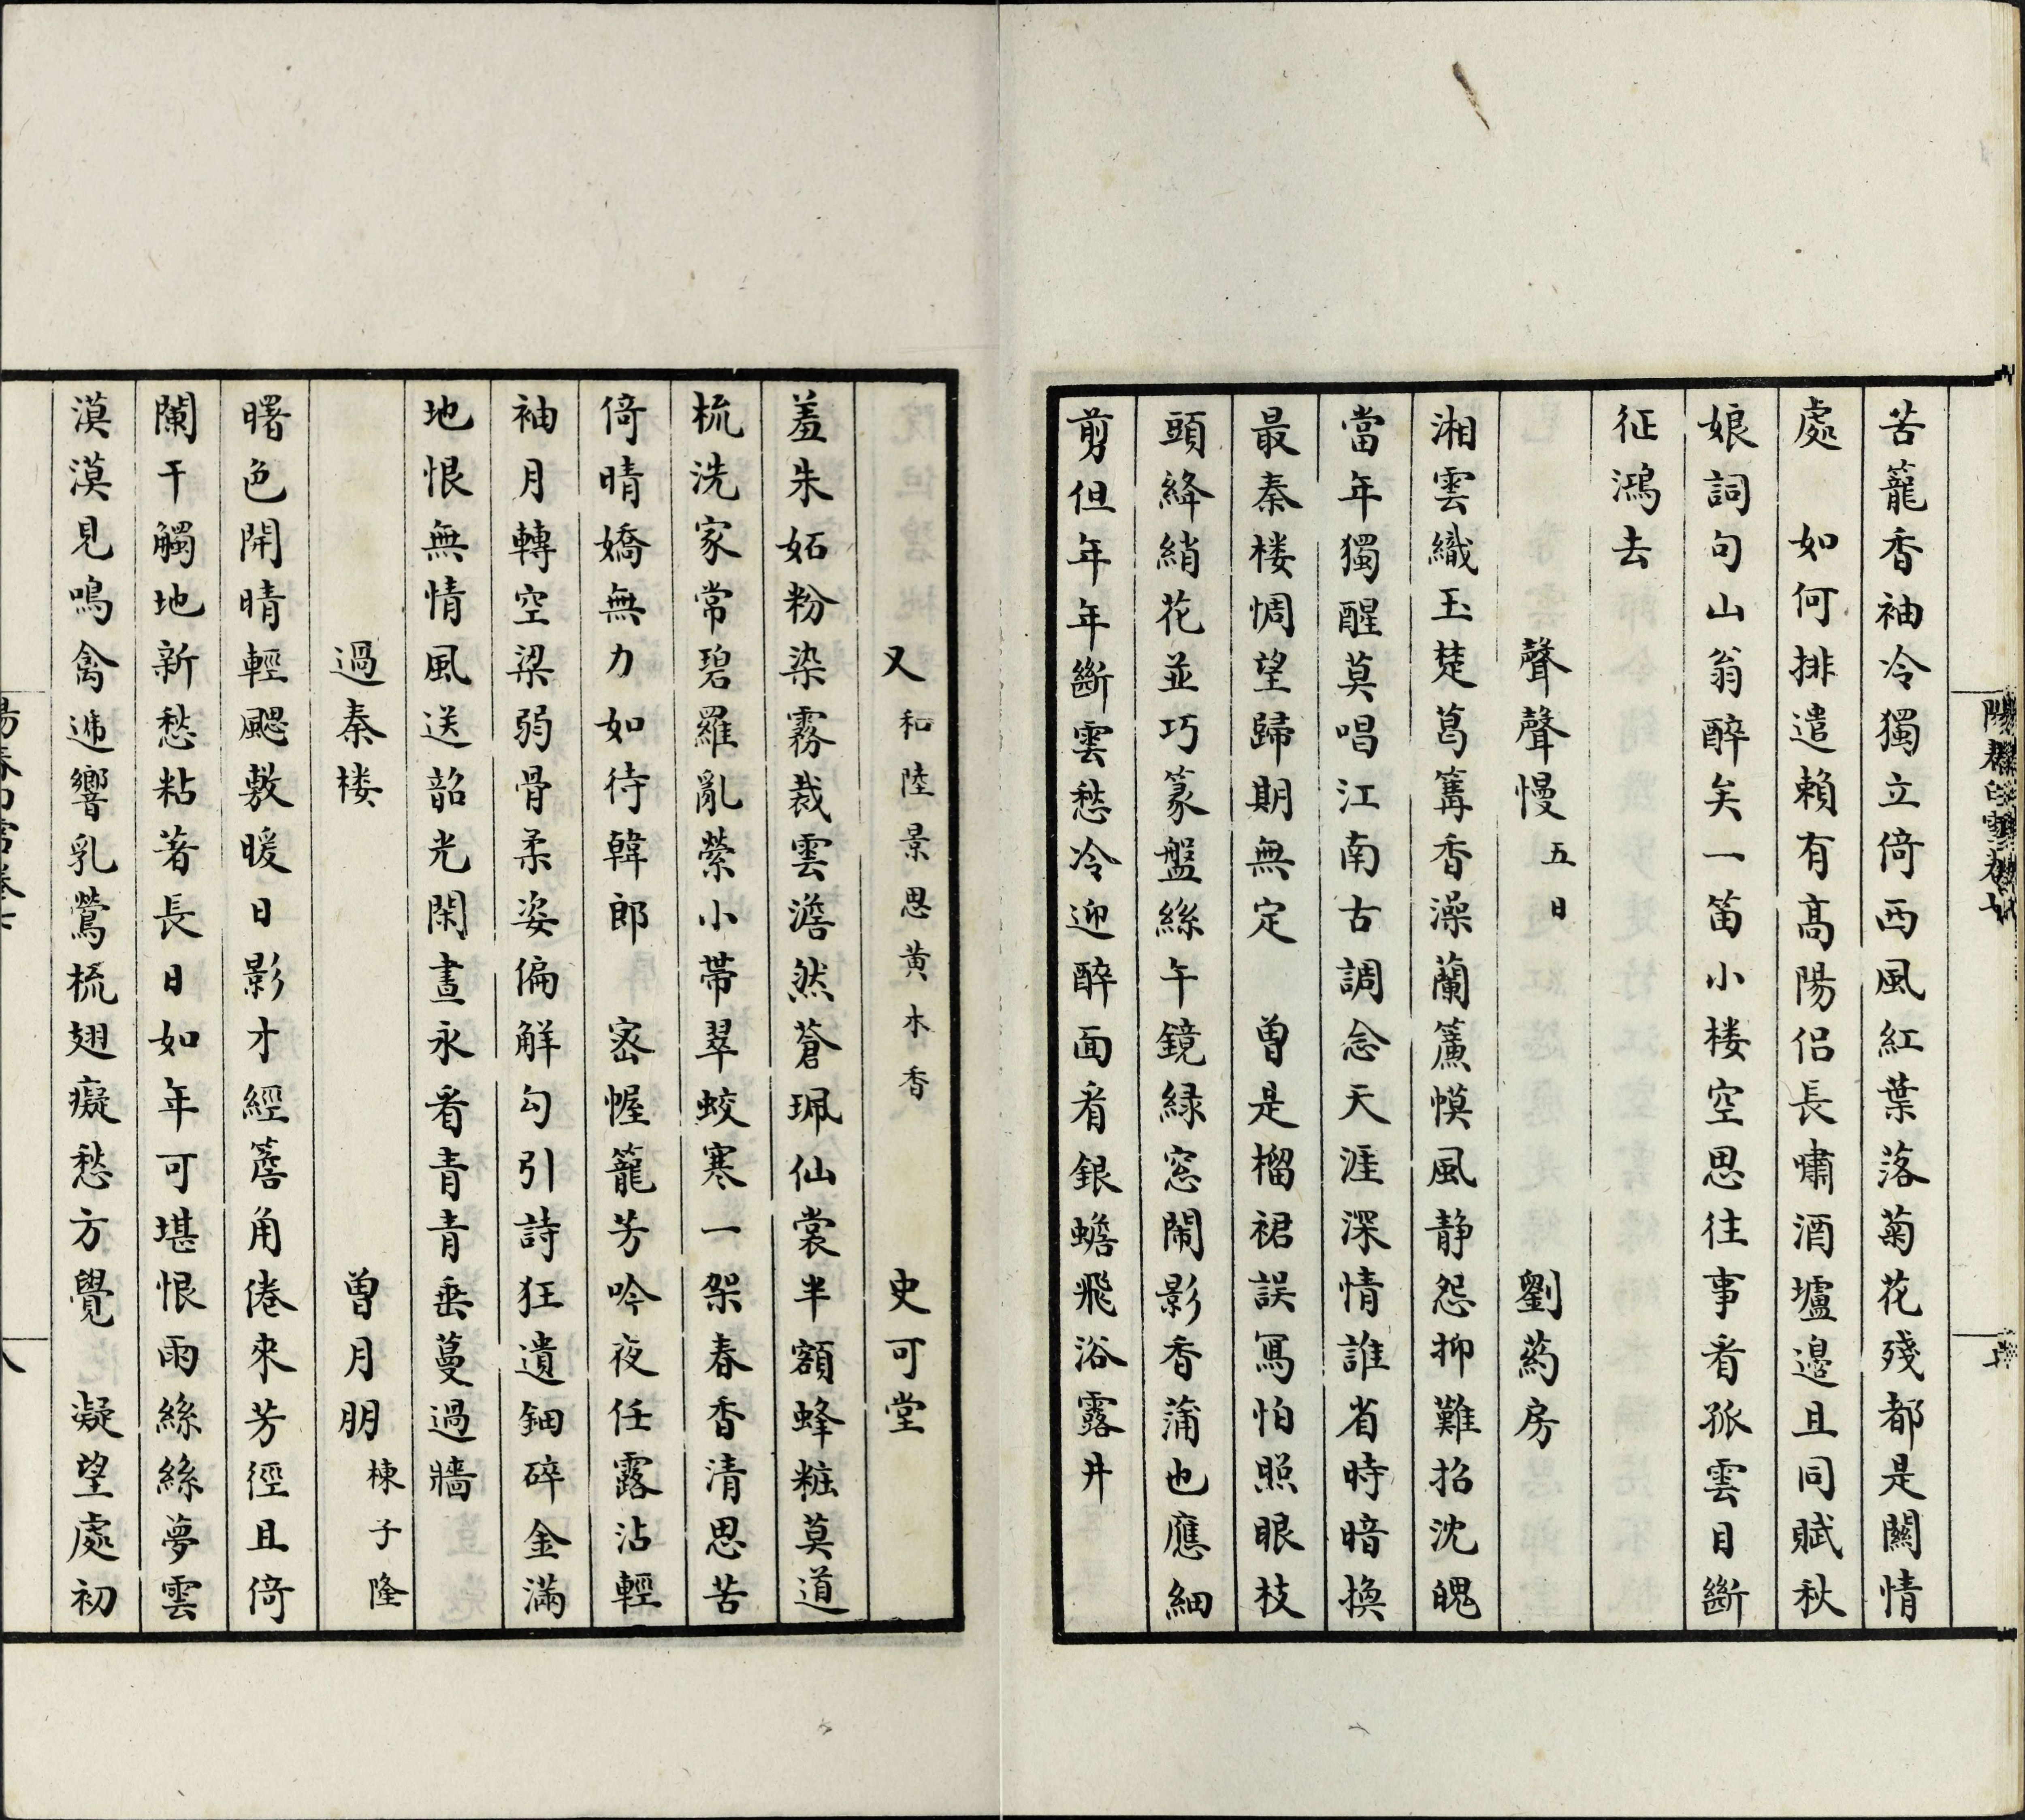 苦籠香袖冷獨立倚西風紅葉落菊花殘都是關情
處　如何排遣賴有高陽侣長嘯酒壚邊且同賦秋
娘詞句山翁醉矣一笛小楼空思往事看孤雲目斷
征鴻去
聲聲慢五日　劉葯房
湘雲織玉楚葛篝香澡蘭簾幙風静怨抑難招沈魄
當年獨醒莫唱江南古調念天涯深情誰省時暗換
最秦楼惆望歸期無定　曾是榴裙誤寫怕照眼枝
頭絳綃花並巧篆盤絲午鏡緑窓閙影香蒲也應細
剪但年年斷雲愁冷迎醉面看銀蟾飛浴露井
又和陸景思黄木香　史可堂
羞朱妬粉染霧裁雲澹然蒼珮仙裳半額蜂粧莫道
梳洗家常碧羅亂縈小帶翠蛟寒一架春香清思苦
倚晴嬌無力如待韓郎　宻幄籠芳吟夜任露沾輕
袖月轉空梁弱骨柔姿偏解勾引詩狂遺鈿碎金滿
地恨無情風送韶光閑晝永看青青垂蔓過牆
過秦楼　曾月朋棟子隆
曙色開晴輕颸敷暖日影才經簷角倦來芳徑且倚
闌干觸地新愁粘著長日如年可堪恨雨絲絲夢雲
漠漠見鳴禽逓響乳鶯梳翅癡愁方覺　凝望處初